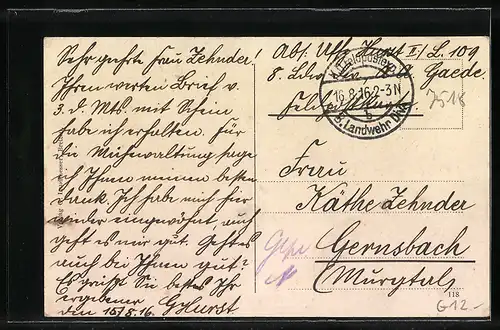 Sehr geehrte Frau Zehnder!
Ihren werten Brief v.
3. d. Mts. mit Schein
habe ich erhalten. Für
die Mühewaltung sage
ich Ihnen meinen besten
Dank. Ich habe mich hier
wieder eingewöhnt, auch
geht es mir gut. Geht es
auch bei Ihnen gut?
Es grüßt Sie bestens Ihr
ergebener GHurst
den 15/8.16.
Abs. Utffz Hurst II/L. 109
8. Ldw. Div. Gaede.
Feldpost
K.D. Feldpostexp.
16.8.16.2-3N
b
8. Landwehr Div.
7518
Frau
Käthe Zehnder
Gernsbach
(Murgtal)
118
G12.-